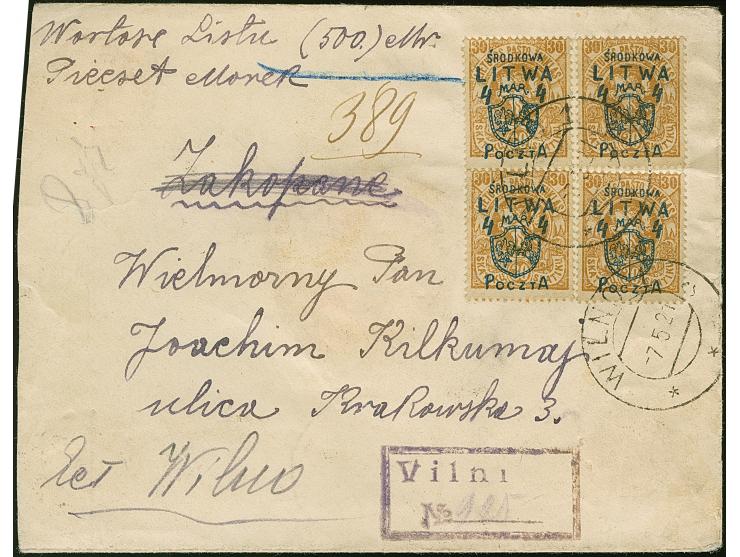 Wartose Listu (500.) Mr.
Piecset Marek
389
Zakopane
Wielmorny Pan
Joachim Kilkumaj
ulica Krakowska 3.
Wilno
30 30
ŚRODKOWA
LITWA
4 MAR. 4
POCZTA
30 30
ŚRODKOWA
LITWA
4 MAR. 4
POCZTA
30 30
ŚRODKOWA
LITWA
4 MAR. 4
POCZTA
30 30
ŚRODKOWA
LITWA
4 MAR. 4
POCZTA
WILNO
-7.5.21
Vilni
№ 125